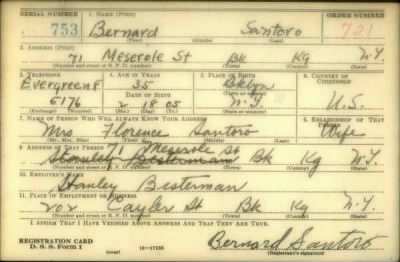 SERIAL NUMBER 1. NAME (Print) ORDER NUMBER
753 Bernard Santoro 721
(First) (Middle) (Last)
2. ADDRESS (Print)
71 Meserole St Bk Kg N.Y.
(Number and street or R. F. D. number) (Town) (County) (State)
3. TELEPHONE 4. AGE IN YEARS 5. PLACE OF BIRTH 6. COUNTRY OF CITIZENSHIP
Evergreen 8 35 Bklyn
DATE OF BIRTH (Town or county)
6176 2 18 05 N.Y. U.S.
(Exchange) (Number) (Mo.) (Day) (Yr.) (State or country)
7. NAME OF PERSON WHO WILL ALWAYS KNOW YOUR ADDRESS 8. RELATIONSHIP OF THAT PERSON
Mrs Florence Santoro Wife
(Mr., Mrs., Miss) (First) (Middle) (Last)
9. ADDRESS OF THAT PERSON 71 Meserole St
Stanley Besterman Bk Kg N.Y.
(Number and street or R. F. D. number) (Town) (County) (State)
10. EMPLOYER'S NAME
Stanley Besterman
11. PLACE OF EMPLOYMENT OR BUSINESS
202 Calyer St Bk Kg N.Y.
(Number and street or R. F. D. number) (Town) (County) (State)
I AFFIRM THAT I HAVE VERIFIED ABOVE ANSWERS AND THAT THEY ARE TRUE.
REGISTRATION CARD
D. S. S. Form 1 (over) 16—17105 Bernard Santoro
(Registrant's signature)